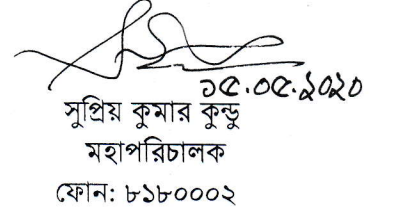 ১৫.০৫.২০২০
সুপ্রিয় কুমার কুন্ডু
মহাপরিচালক
ফোন: ৮১৮০০০২